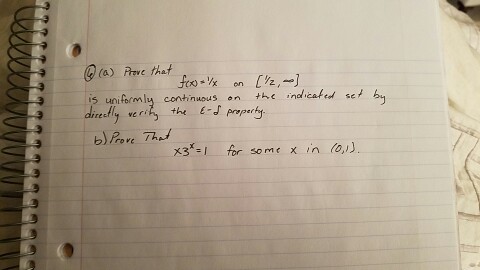 ⑥ (a) Prove that
f(x) = 1/x on [1/2, ∞]
is uniformly continuous on the indicated set by
directly verify the ε-δ property.
b) Prove That
x3^x = 1 for some x in (0,1).